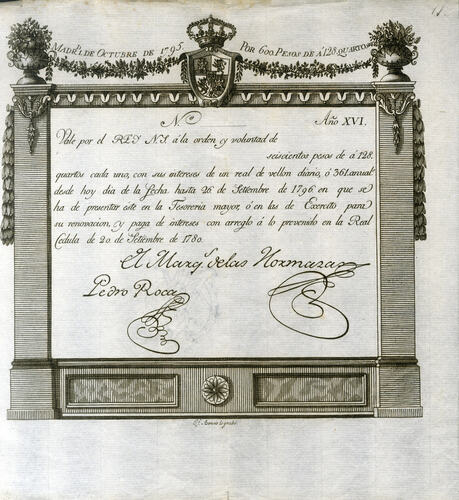 MADRD. 1. DE OCTUBRE DE 1795.
POR 600. PESOS DE Á 128 QUARTOS
No
Año XVI.
Vale por el REY N.S. á la orden y voluntad de
seiscientos pesos de á 128.
quartos cada uno, con sus intereses de un real de vellon diario, ó 361 anual
desde hoy dia de la fecha hasta 26 de Setiembre de 1796 en que se
ha de presentar este en la Tesoreria mayor, ó en las de Exercito para
su renovacion, y paga de intereses con arreglo á lo prevenido en la Real
Cedula de 20 de Setiembre de 1780.
El Marqs. de las Hormazas
Pedro Roca